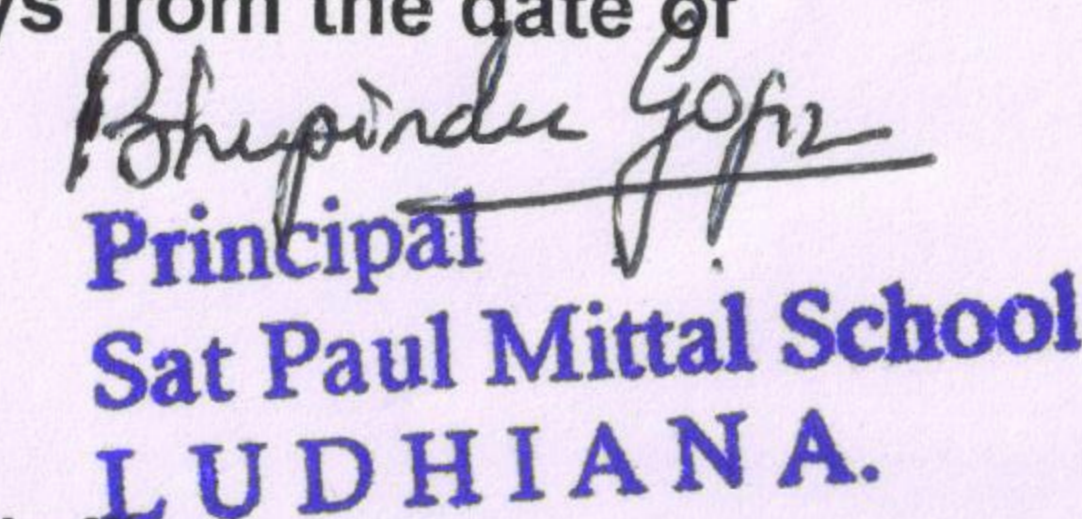 ys from the date of
Bhupinder Gogia
Principal
Sat Paul Mittal School
LUDHIANA.